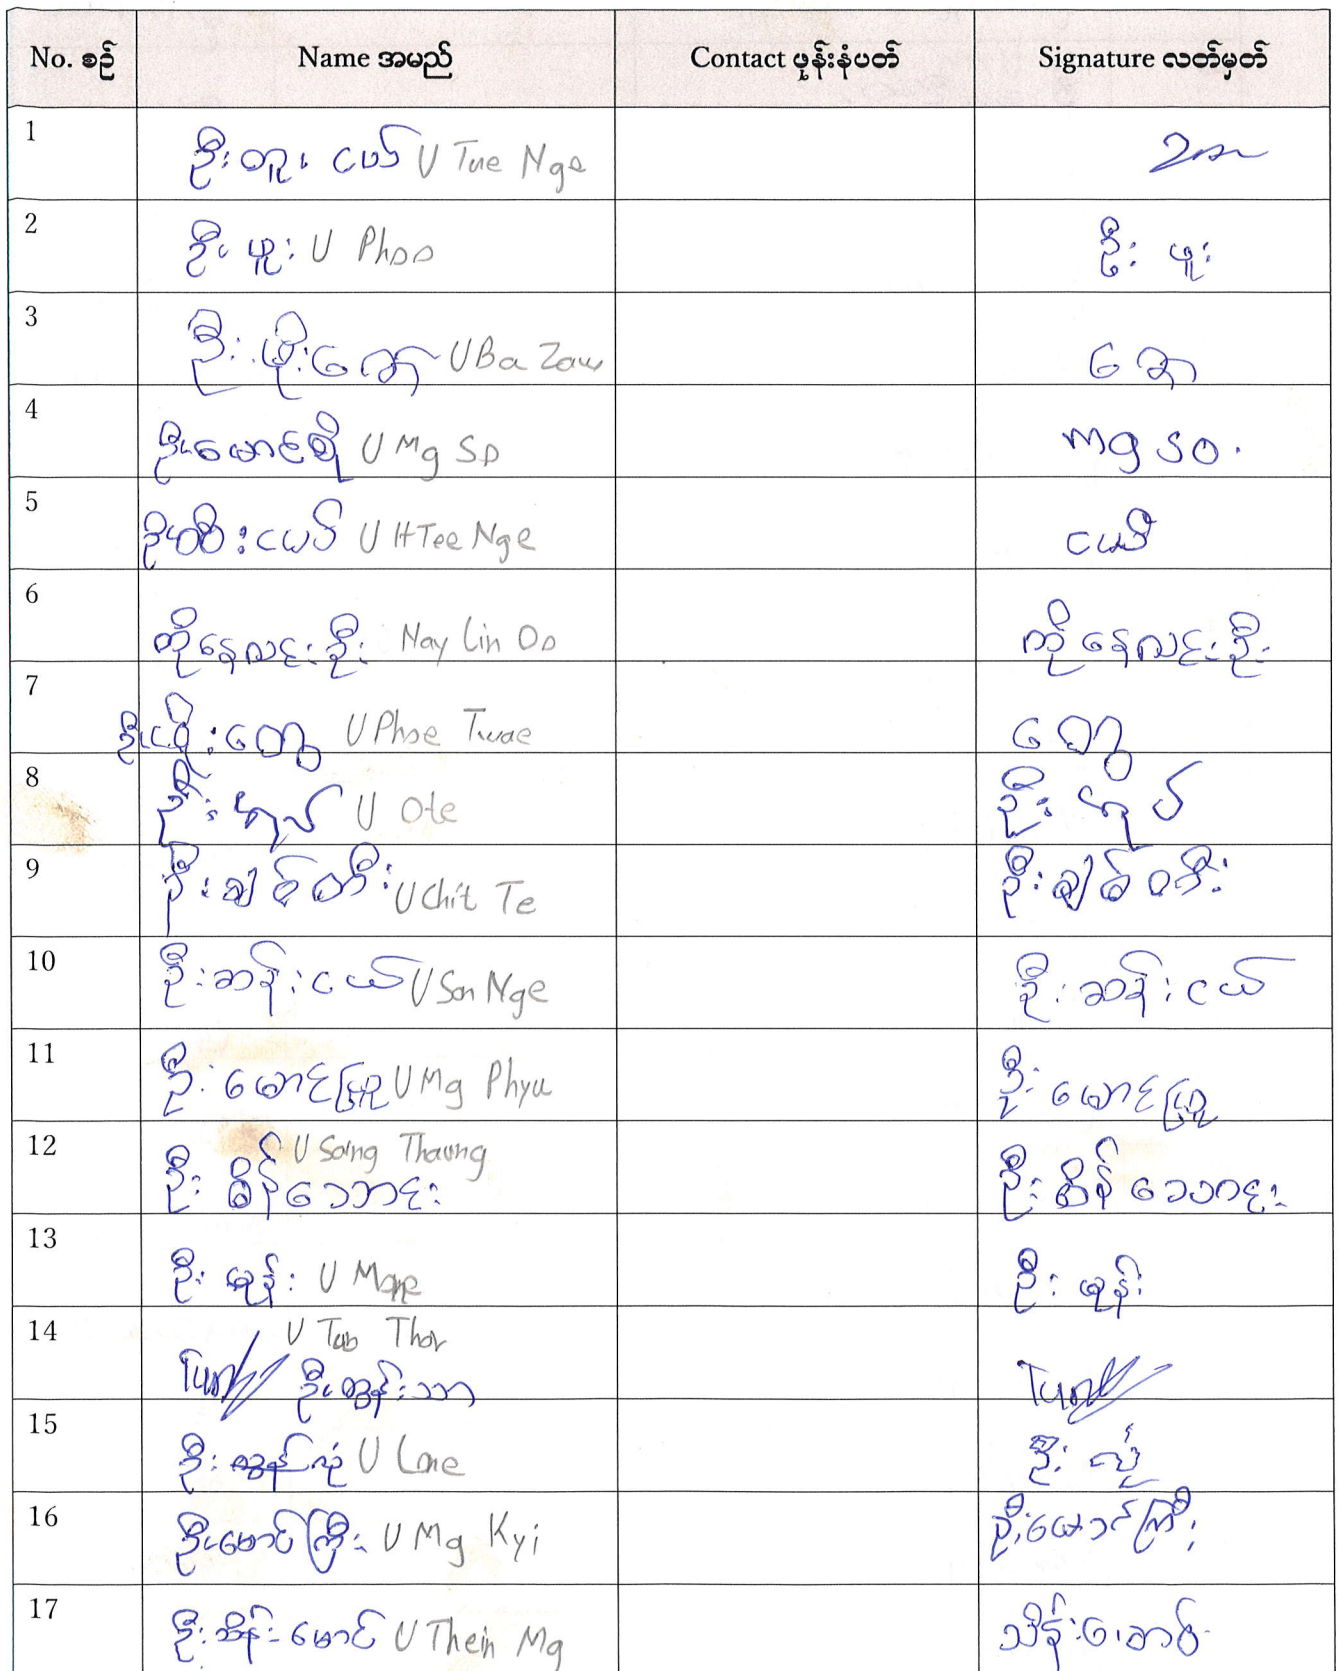 No. စဉ် Name အမည် Contact ဖုန်းနံပတ် Signature လတ်မှတ်
1 ဦးတူး ငယ် U Tue Nge
2 ဦး ဖူး U Phoo ဦး ဖူး
3 ဦး ဖိုးဇော် U Ba Zaw ဇော်
4 ဦးမောင်စို U Mg So mg so.
5 ဦးထီးငယ် U HTee Nge ငယ်
6 ကိုနေလင်းဦး Nay Lin Oo ကိုနေလင်းဦး
7 ဦးဖိုးတွေ U Phoe Twae တွေ
8 ဦး အုပ် U Ote ဦး အုပ်
9 ဦးချစ်တီး U Chit Te ဦးချစ်တီး
10 ဦးဆန်းငယ် U San Nge ဦးဆန်းငယ်
11 ဦးမောင်ဖြူ U Mg Phyu ဦးမောင်ဖြူ
12 U Saing Thaung
ဦး စိန်သောင်း ဦး စိန်သောင်း
13 ဦး မုန်း U Mone ဦး မုန်း
14 U Tun Thar
Tun ဦးထွန်းသာ Tun
15 ဦး လုံ U Lone ဦး လုံ
16 ဦးမောင်ကြီး U Mg Kyi ဦးမောင်ကြီး
17 ဦးသိန်းမောင် U Thein Mg သိန်းမောင်